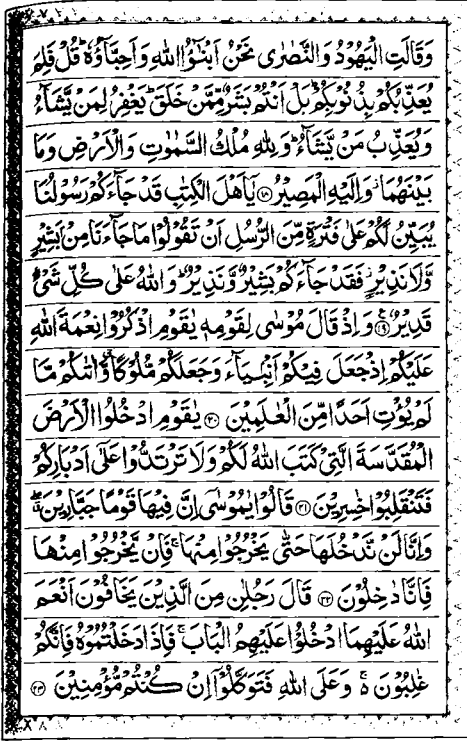 وَقَالَتِ الْيَهُوْدُ وَالنَّصٰرٰى نَحْنُ اَبْنٰٓؤُا اللّٰهِ وَاَحِبَّآؤُهٗ ؕ قُلْ فَلِمَ
يُعَذِّبُكُمْ بِذُنُوْبِكُمْ ؕ بَلْ اَنْتُمْ بَشَرٌ مِّمَّنْ خَلَقَ ؕ يَغْفِرُ لِمَنْ يَّشَآءُ
وَيُعَذِّبُ مَنْ يَّشَآءُ ؕ وَلِلّٰهِ مُلْكُ السَّمٰوٰتِ وَالْاَرْضِ وَمَا
بَيْنَهُمَا ۫ وَاِلَيْهِ الْمَصِيْرُ ﴿۱۸﴾ يٰۤاَهْلَ الْكِتٰبِ قَدْ جَآءَكُمْ رَسُوْلُنَا
يُبَيِّنُ لَكُمْ عَلٰى فَتْرَةٍ مِّنَ الرُّسُلِ اَنْ تَقُوْلُوْا مَا جَآءَنَا مِنْۢ بَشِيْرٍ
وَّلَا نَذِيْرٍ ؗ فَقَدْ جَآءَكُمْ بَشِيْرٌ وَّنَذِيْرٌ ؕ وَاللّٰهُ عَلٰى كُلِّ شَىْءٍ
قَدِيْرٌ ﴿۱۹﴾ وَاِذْ قَالَ مُوْسٰى لِقَوْمِهٖ يٰقَوْمِ اذْكُرُوْا نِعْمَةَ اللّٰهِ
عَلَيْكُمْ اِذْ جَعَلَ فِيْكُمْ اَنْۢبِيَآءَ وَجَعَلَكُمْ مُّلُوْكًا ۖ وَّاٰتٰىكُمْ مَّا
لَمْ يُؤْتِ اَحَدًا مِّنَ الْعٰلَمِيْنَ ﴿۲۰﴾ يٰقَوْمِ ادْخُلُوا الْاَرْضَ
الْمُقَدَّسَةَ الَّتِىْ كَتَبَ اللّٰهُ لَكُمْ وَلَا تَرْتَدُّوْا عَلٰٓى اَدْبَارِكُمْ
فَتَنْقَلِبُوْا خٰسِرِيْنَ ﴿۲۱﴾ قَالُوْا يٰمُوْسٰٓى اِنَّ فِيْهَا قَوْمًا جَبَّارِيْنَ ۖ
وَاِنَّا لَنْ نَّدْخُلَهَا حَتّٰى يَخْرُجُوْا مِنْهَا ۚ فَاِنْ يَّخْرُجُوْا مِنْهَا
فَاِنَّا دٰخِلُوْنَ ﴿۲۲﴾ قَالَ رَجُلٰنِ مِنَ الَّذِيْنَ يَخَافُوْنَ اَنْعَمَ
اللّٰهُ عَلَيْهِمَا ادْخُلُوْا عَلَيْهِمُ الْبَابَ ۚ فَاِذَا دَخَلْتُمُوْهُ فَاِنَّكُمْ
غٰلِبُوْنَ ۚ ۬ وَعَلَى اللّٰهِ فَتَوَكَّلُوْۤا اِنْ كُنْتُمْ مُّؤْمِنِيْنَ ﴿۲۳﴾